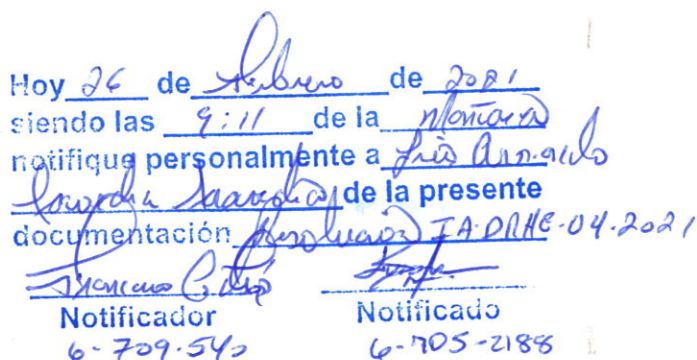 Hoy 26 de Febrero de 2021
siendo las 9:11 de la Mañana
notifique personalmente a Luis
Saavedra de la presente
documentación Resolución IA-DRHE-04-2021
Notificador Notificado
6-709-540 6-705-2188